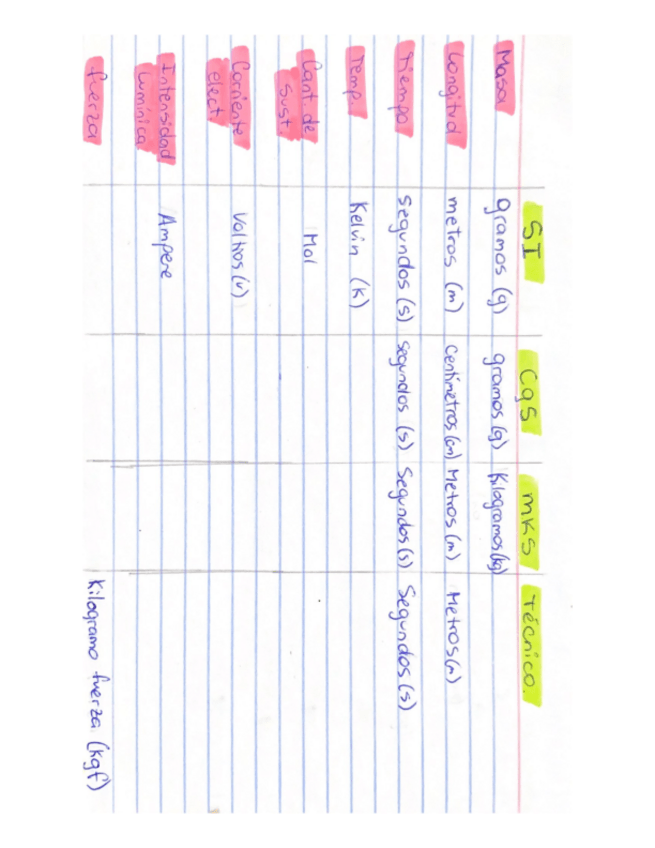 SI Cgs mks Técnico.
Masa gramos (g) gramos (g) Kilogramos (kg)
Longitud metros (m) Centímetros (cm) Metros (m) Metros (m)
Tiempo segundos (s) segundos (s) Segundos (s) Segundos (s)
Temp. Kelvin (K)
Cant de Sust. Mol
Corriente elect. Voltios (v)
Intensidad Lumínica Ampere
fuerza Kilogramo fuerza (kgf)